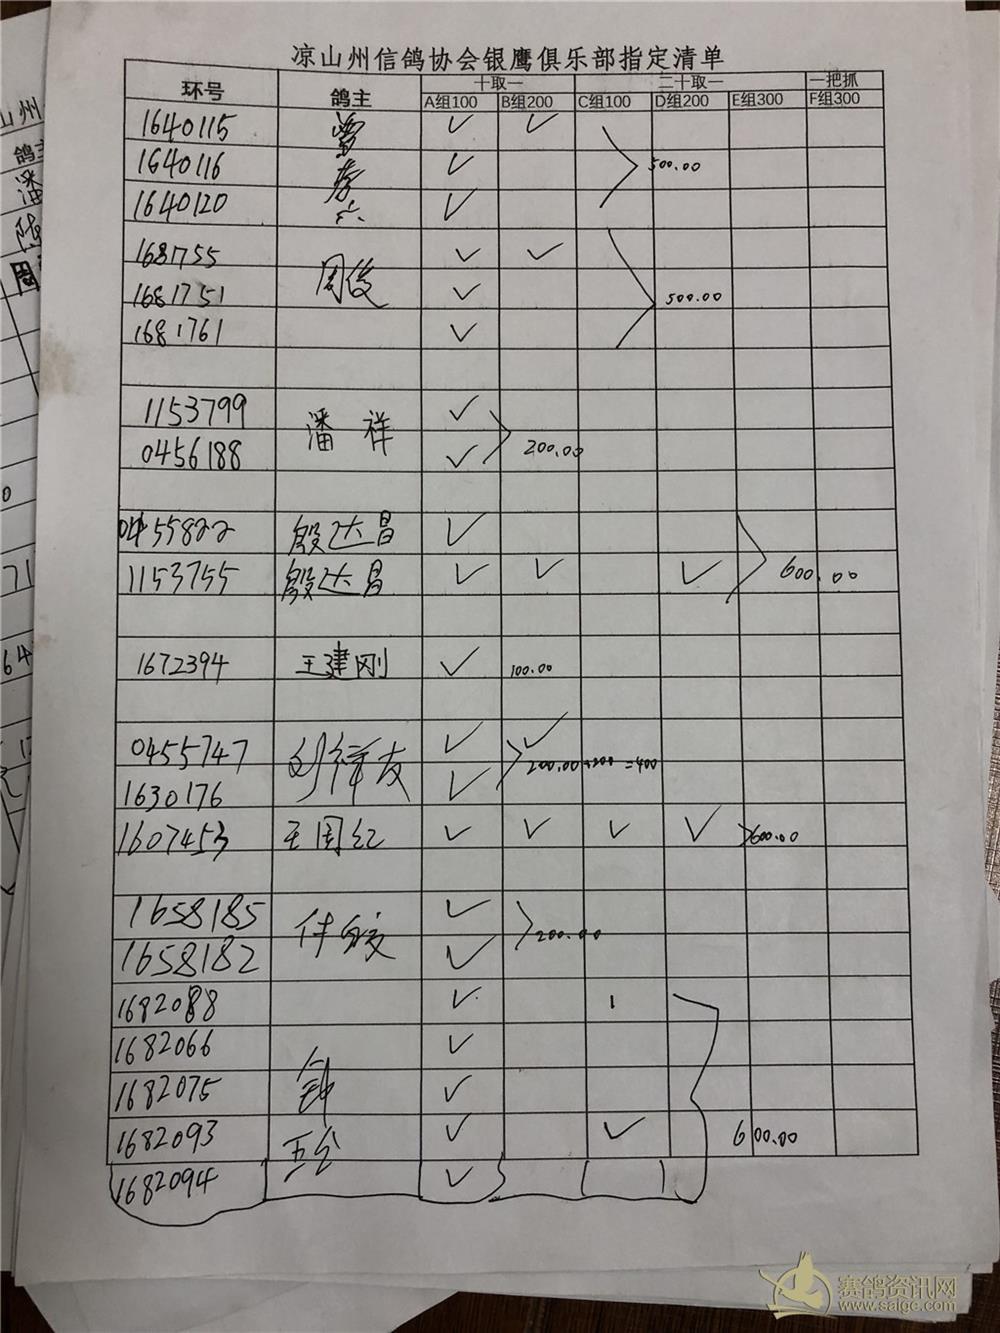 凉山州信鸽协会银鹰俱乐部指定清单
环号 鸽主 十取一 二十取一 一把抓
A组100 B组200 C组100 D组200 E组300 F组300
1640115 ✓ ✓
1640116 ✓ 500.00
1640120 ✓
1681755 ✓ ✓
1681751 周俊 ✓ 500.00
1681761 ✓
1153799 潘祥 ✓
0456188 ✓ 200.00
0455822 殷达昌 ✓
1153755 殷达昌 ✓ ✓ ✓ 600.00
1672394 王建刚 ✓ 100.00
0455747 刘祥友 ✓ ✓ 200.00+200=400
1630176 ✓
1607453 王国红 ✓ ✓ ✓ ✓ 600.00
1658185 ✓ 200.00
1658182 ✓
1682088 ✓
1682066 ✓
1682075 钟 ✓
1682093 ✓ ✓ 600.00
1682094 ✓
山州
鸽主
潘
周
0
71
64
赛鸽资讯网
www.saigc.com